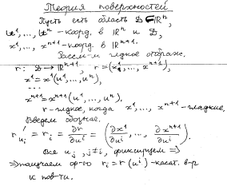 Теория поверхностей
Пусть есть область D ⊂ ℝⁿ,
u¹,..., uⁿ - коорд. в ℝⁿ и D,
x¹,..., xⁿ⁺¹ - коорд. в ℝⁿ⁺¹.
Рассм-м гладкое отображ.
r: D → ℝⁿ⁺¹, r = (x¹,..., xⁿ⁺¹)
x¹ = x¹(u¹,..., uⁿ),
...
xⁿ⁺¹ = xⁿ⁺¹(u¹,..., uⁿ),
r - гладкое, когда x¹,..., xⁿ⁺¹ - гладкие.
Введем обознач.
r'ᵤᵢ = rᵢ = ∂r/∂uⁱ = (∂x¹/∂uⁱ, ..., ∂xⁿ⁺¹/∂uⁱ).
Все uⱼ, j≠i, фиксируем ⇒
⇒ получаем ф-ю rᵢ = r(uⁱ) - касат. в-р
к пов-ти.